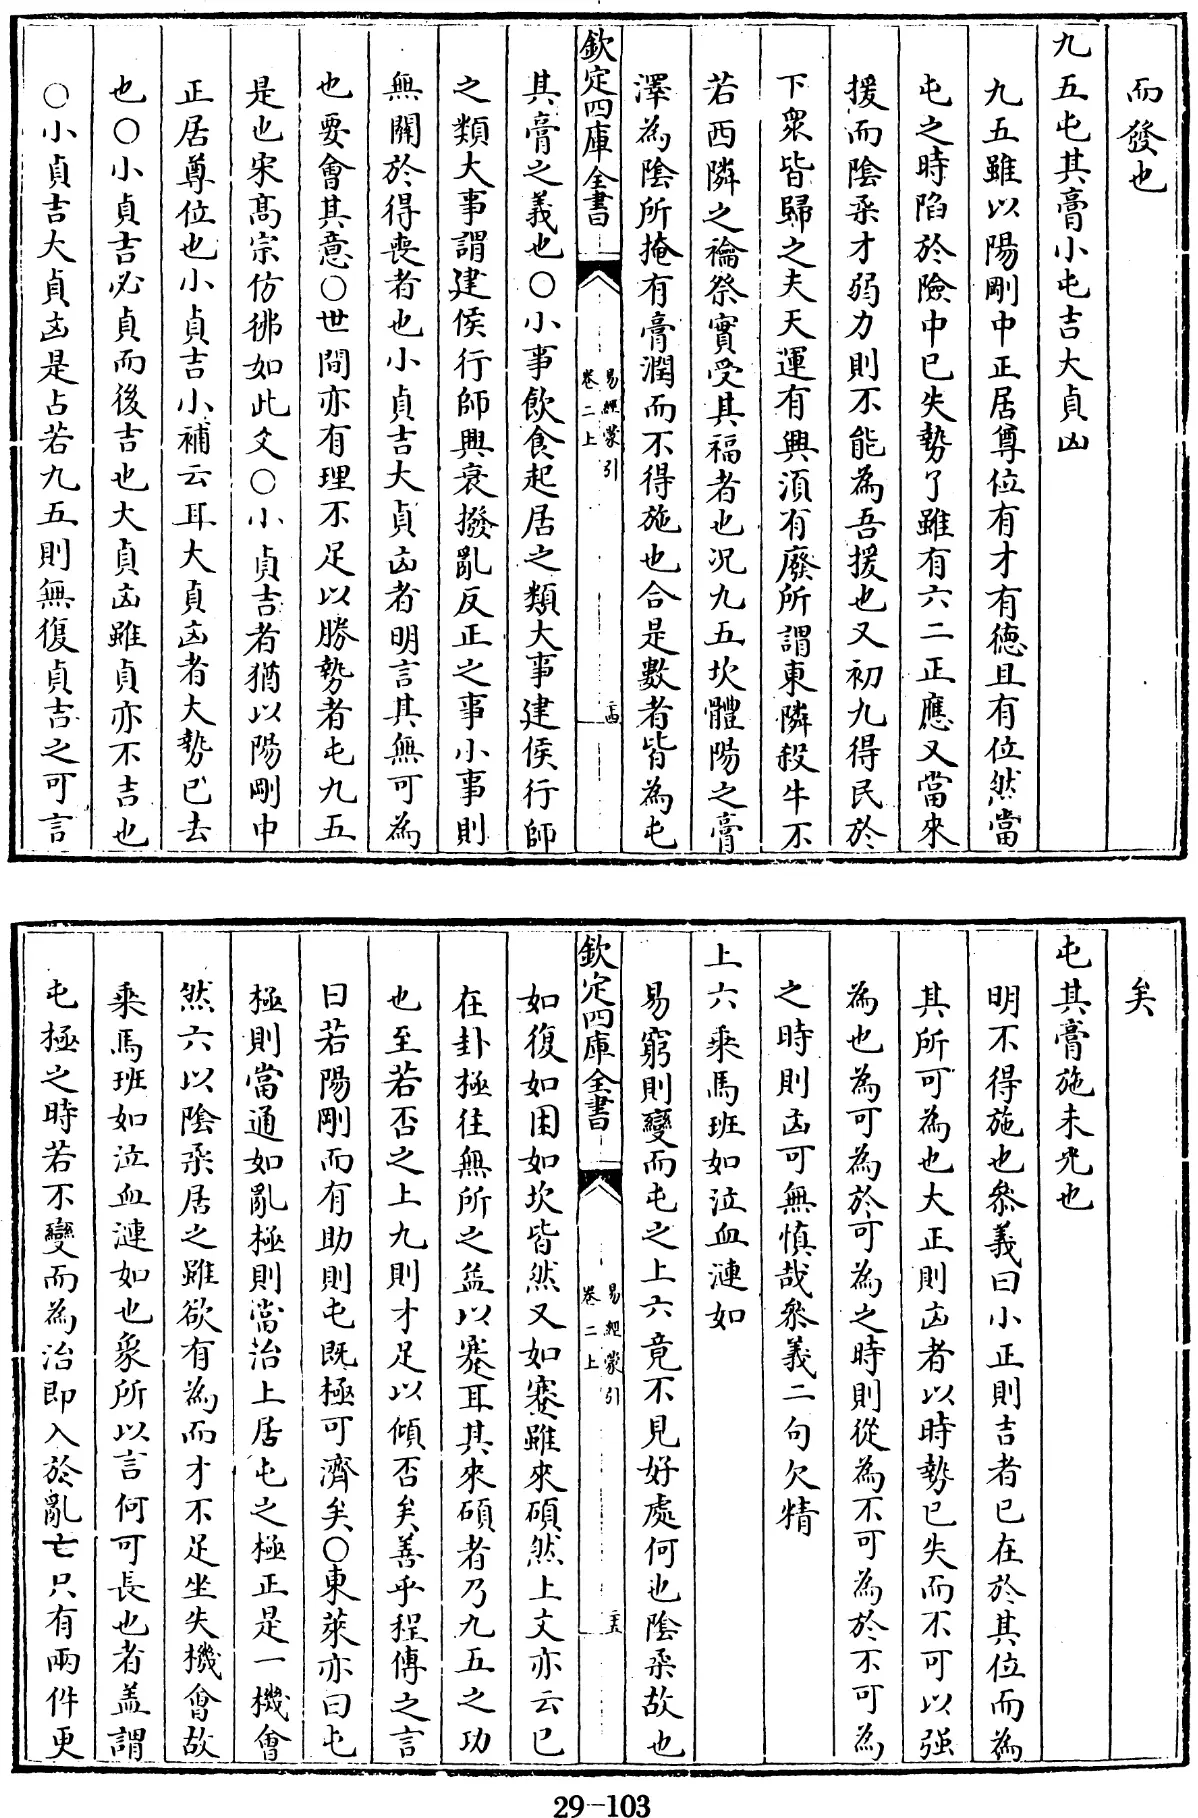 而發也
九五屯其膏小屯吉大貞凶
九五雖以陽剛中正居尊位有才有德且有位然當
屯之時陷於險中已失勢了雖有六二正應又當來
援而陰柔才弱力則不能為吾援也又初九得民於
下衆皆歸之夫天運有興須有廢所謂東隣殺牛不
若西隣之禴祭實受其福者也况九五坎體陽之膏
澤為陰所掩有膏潤而不得施也合是數者皆為屯
欽定四庫全書
易經蒙引
卷二上
二十四
其膏之義也○小事飲食起居之類大事建侯行師
之類大事謂建侯行師興衰撥亂反正之事小事則
無關於得喪者也小貞吉大貞凶者明言其無可為
也要會其意○世間亦有理不足以勝勢者屯九五
是也宋髙宗仿彿如此爻○小貞吉者猶以陽剛中
正居尊位也小貞吉小補云耳大貞凶者大勢已去
也○小貞吉必貞而後吉也大貞凶雖貞亦不吉也
○小貞吉大貞凶是占若九五則無復貞吉之可言
矣
屯其膏施未光也
明不得施也叅義曰小正則吉者已在於其位而為
其所可為也大正則凶者以時勢已失而不可以强
為也為可為於可為之時則從為不可為於不可為
之時則凶可無慎哉叅義二句欠精
上六乘馬班如泣血漣如
易窮則變而屯之上六竟不見好處何也陰柔故也
欽定四庫全書
易經蒙引
卷二上
二十五
如復如困如坎皆然又如蹇雖來碩然上文亦云已
在卦極往無所之益以蹇耳其來碩者乃九五之功
也至若否之上九則才足以傾否矣善乎程傳之言
曰若陽剛而有助則屯既極可濟矣○東萊亦曰屯
極則當通如亂極則當治上居屯之極正是一機會
然六以陰柔居之雖欲有為而才不足坐失機會故
乘馬班如泣血漣如也象所以言何可長也者盖謂
屯極之時若不變而為治即入於亂亡只有兩件更
29-103